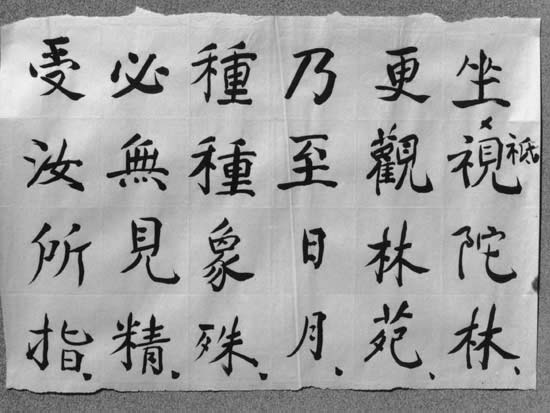 祇
坐視陀林、
更觀林苑、
乃至日月、
種種象殊、
必無見精、
受汝所指、